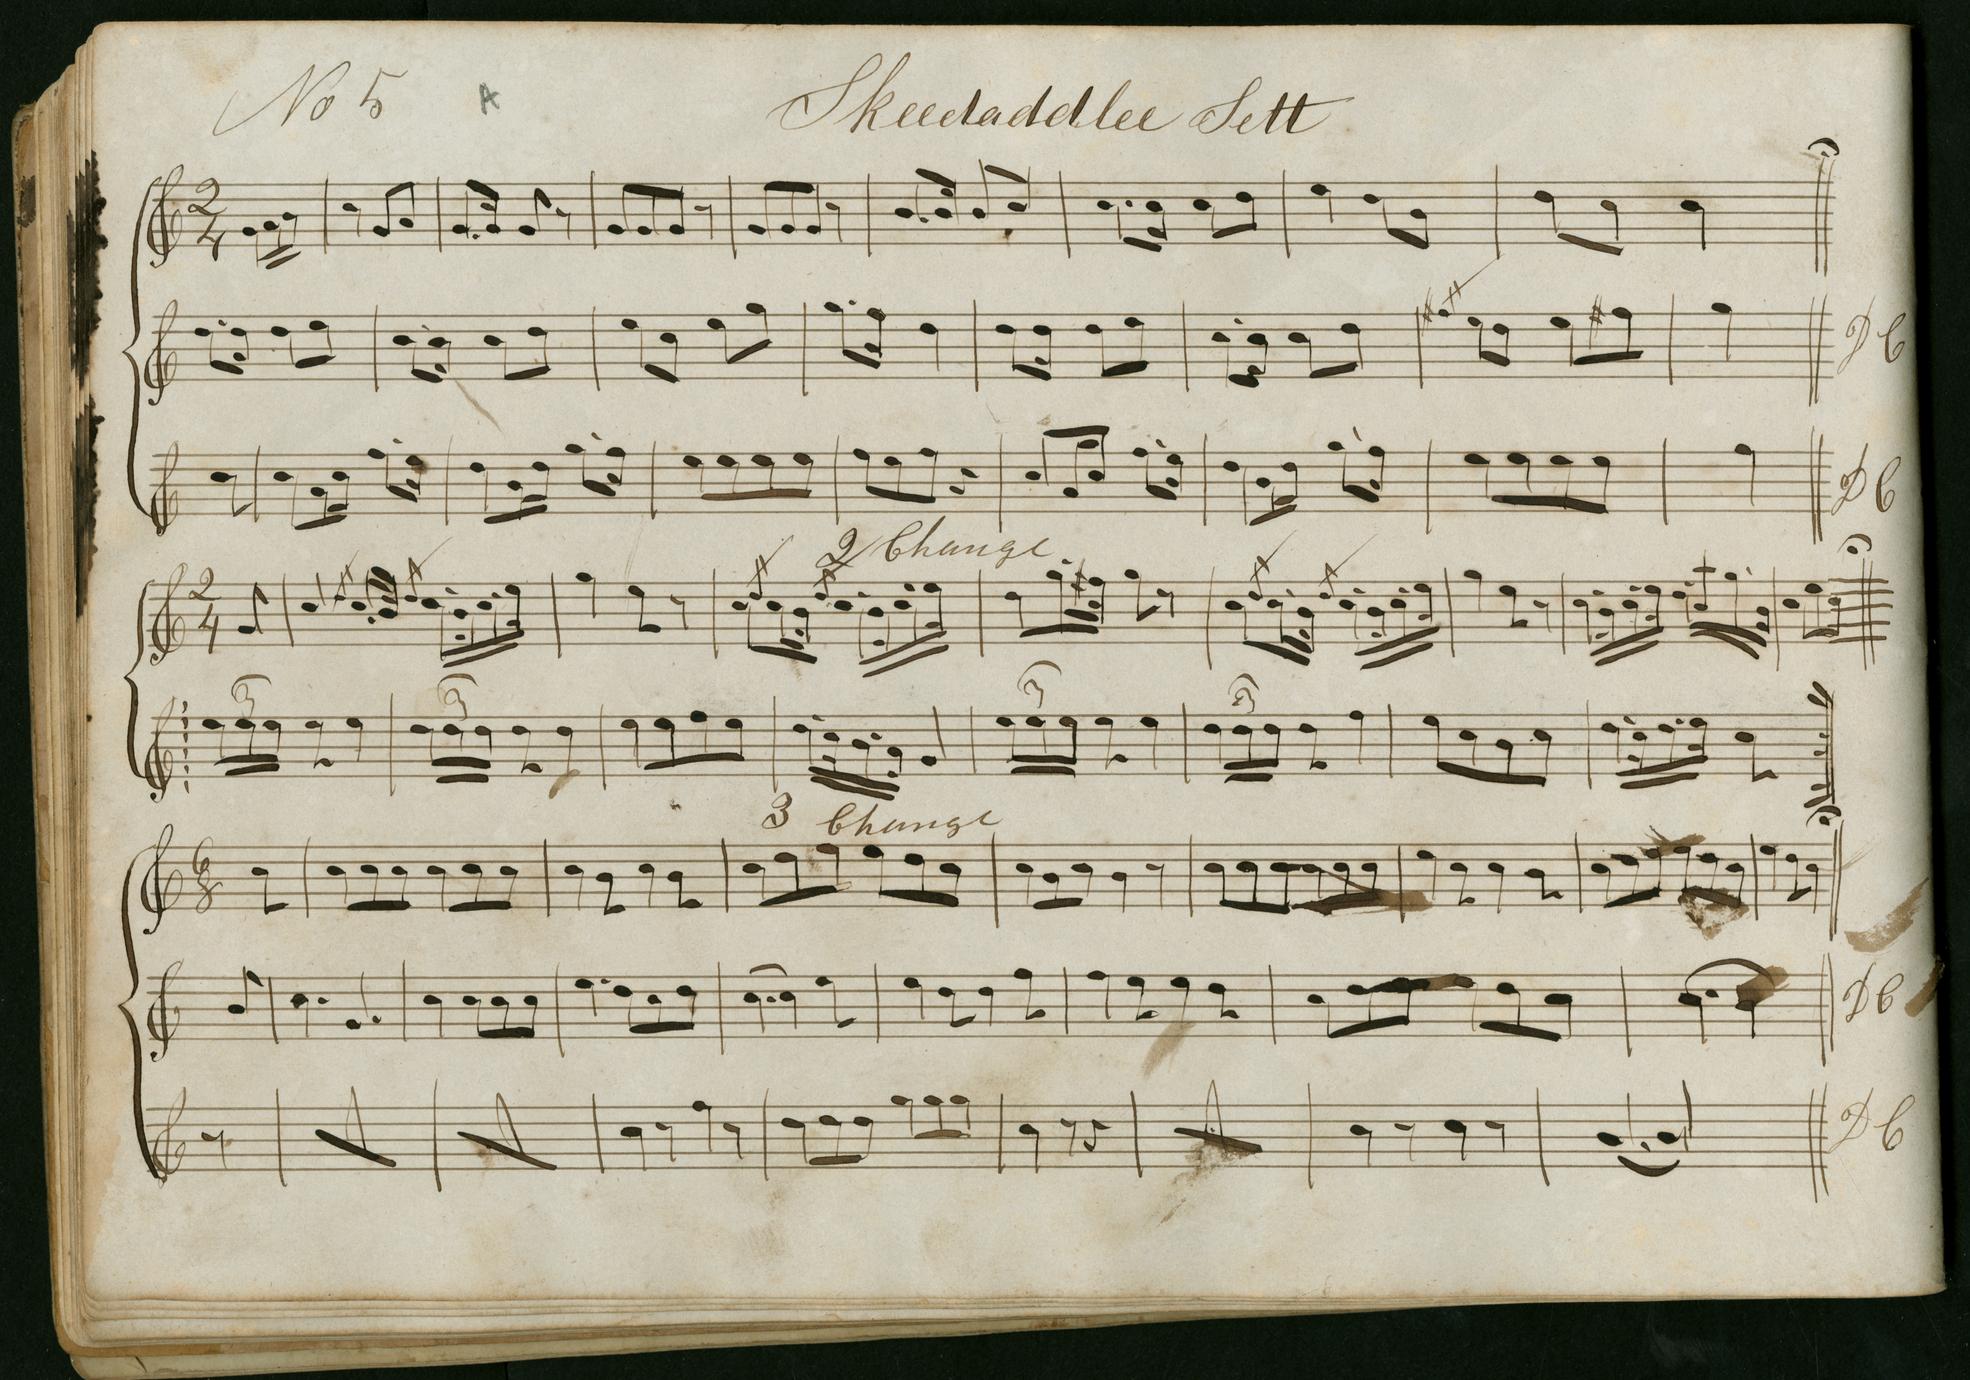 No 5 A Skeedaddlee Sett
2
4
D C
D C
2 Change
2
4
3 3 3 3
3 Change
6
8
D C
D C